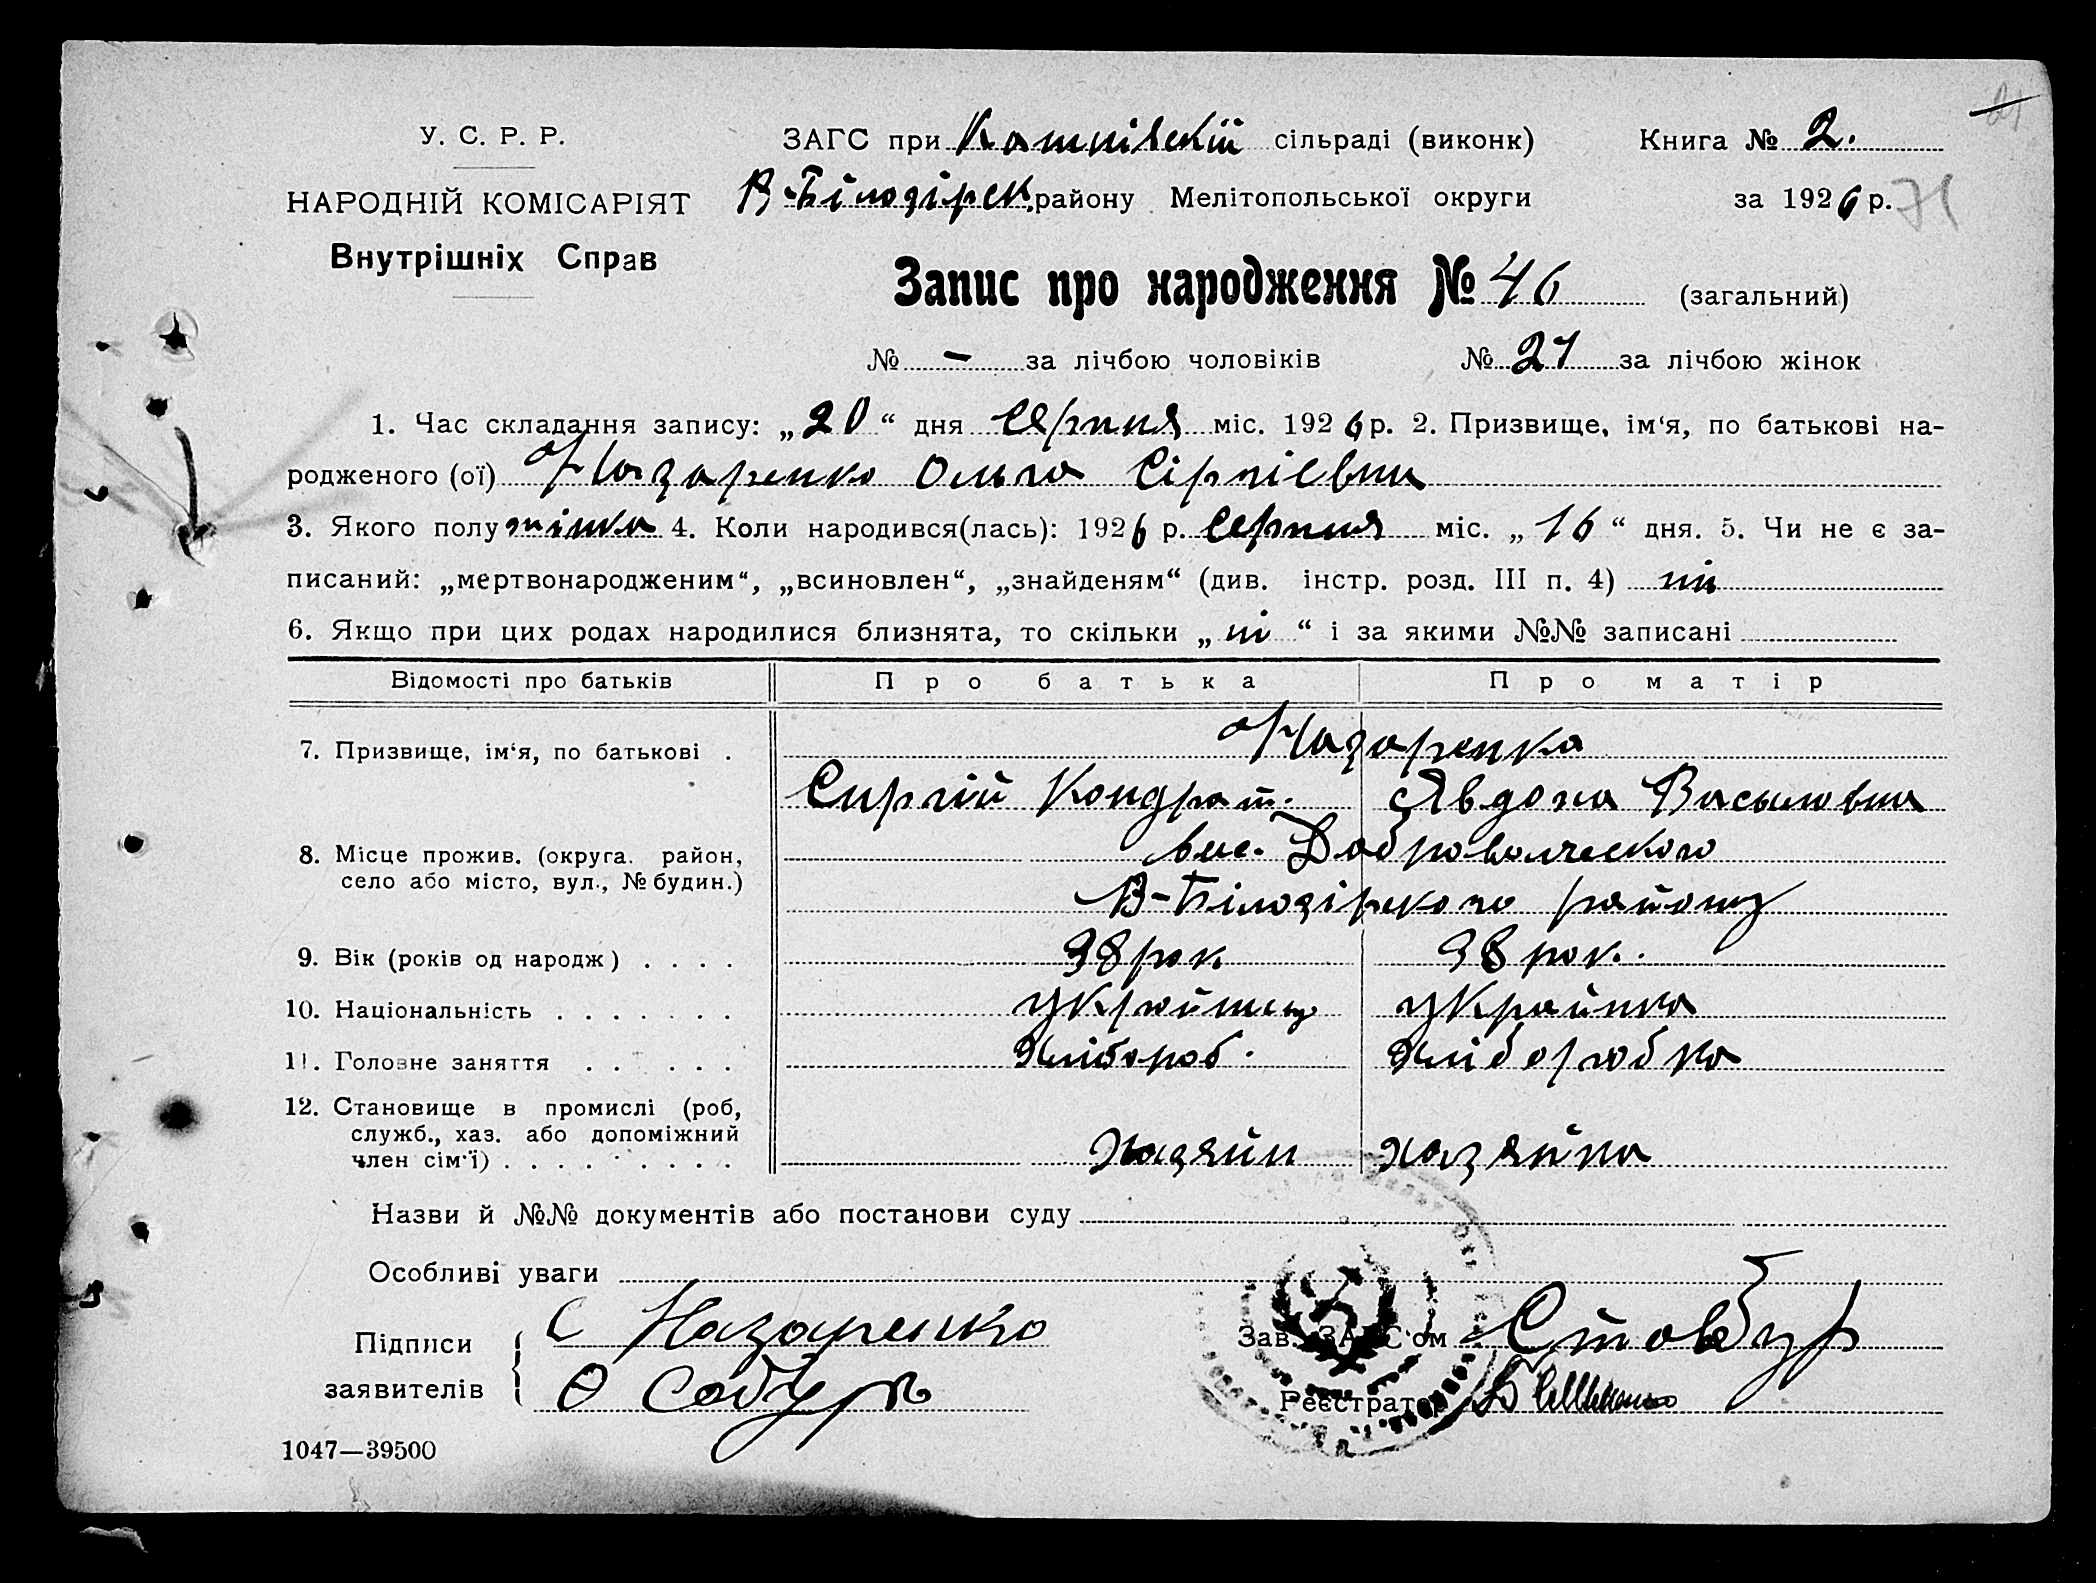 У. С. Р. Р.
НАРОДНІЙ КОМІСАРІЯТ
Внутрішніх Справ
ЗАГС при сільраді (виконк) Книга № 2.
В-Білозірск. району Мелітопольської округи за 1926 р. 71
Запис про народження № 46 (загальний)
№ – за лічбою чоловіків № 21 за лічбою жінок
1. Час складання запису: „20“ дня Серпня міс. 1926 р. 2. Призвище, ім‘я, по батькові на-
родженого (ої) Назаренко Ольга Сіргіевна
3. Якого полу жінка 4. Коли народився(лась): 1926 р. Серпня міс. „16“ дня. 5. Чи не є за-
писаний: „мертвонародженим“, „всиновлен“, „знайденям“ (див. інстр. розд. III п. 4) ні
6. Якщо при цих родах народилися близнята, то скільки „ні“ і за якими №№ записані
Відомості про батьків Про батька Про матір
7. Призвище, ім‘я, по батькові . Назаренка
Сиргій Кондрат. Явдоха Васыловна
8. Місце прожив. (округа. район, вис. Добровольческого
село або місто, вул., № будин.) В-Білозірского району
9. Вік (років од народж) . . . . 38 рок 38 рок.
10. Національність . . . . . . . українец українка
11. Головне заняття . . . . . Хлібороб. Хліборобка
12. Становище в промислі (роб,
служб., хаз. або допоміжний
член сім'ї) . . . . . . . . . Хазяйн хазяйка
Назви й №№ документів або постанови суду
Особливі уваги
Підписи С Назаренко Зав. ЗАГС'ом Стовбур
заявителів Реєстратор
1047—39500